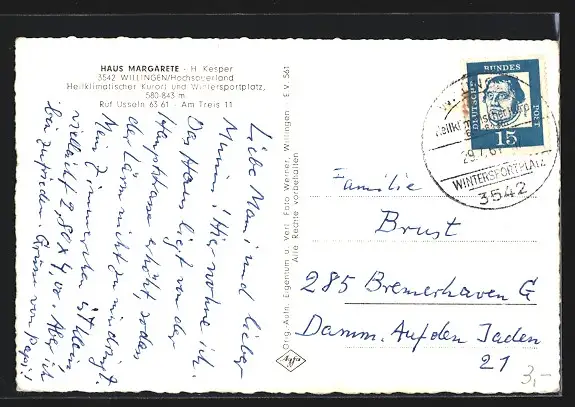 HAUS MARGARETE - H. Kesper
3542 WILLINGEN/Hochsauerland
Heilklimatischer Kurort und Wintersportplatz,
580-843 m
Ruf Usseln 63 61 - Am Treis 11
Liebe Mani und lieber
Mumm! Hier wohne ich.
Das Haus liegt von der
Hauptstrasse erhöht, sodass
der Lärm nicht zu mir dringt.
Mein Zimmerchen ist klein
vielleicht 2,80 x 4,00. Aber ich
bin zufrieden. Grüsse von Papi!
Orig.-Aufn. Eigentum u. Verl. Foto Werner, Willingen E.V. 561
Alle Rechte vorbehalten
Agfa
DEUTSCHE BUNDESPOST
15
Heilklimatischer
WINTERSPORTPLATZ
3542
Familie
Brust
285 Bremerhaven G
Damm. Auf den Jaden
21
3,-